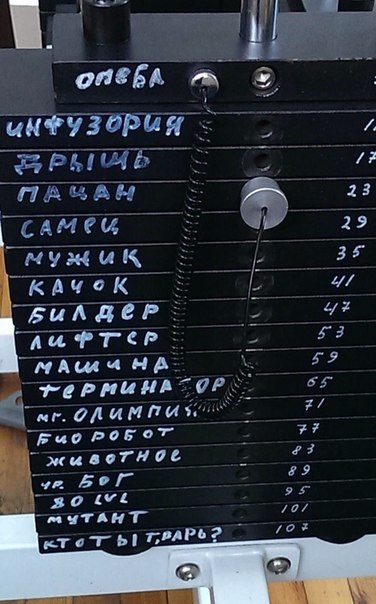 ОМЕБА
ИНФУЗОРИЯ
ДРЫЩЬ 17
ПАЦАН 23
САМЕЦ 29
МУЖИК 35
КАЧОК 41
БИЛДЕР 47
ЛИФТЕР 53
МАШИНА 59
ТЕРМИНАТОР 65
мг. ОЛИМПИЯ 71
БИОРОБОТ 77
ЖИВОТНОЕ 83
УР. БОГ 89
80 LVL 95
МУТАНТ 101
КТО ТЫ Т,ВАРЬ? 107